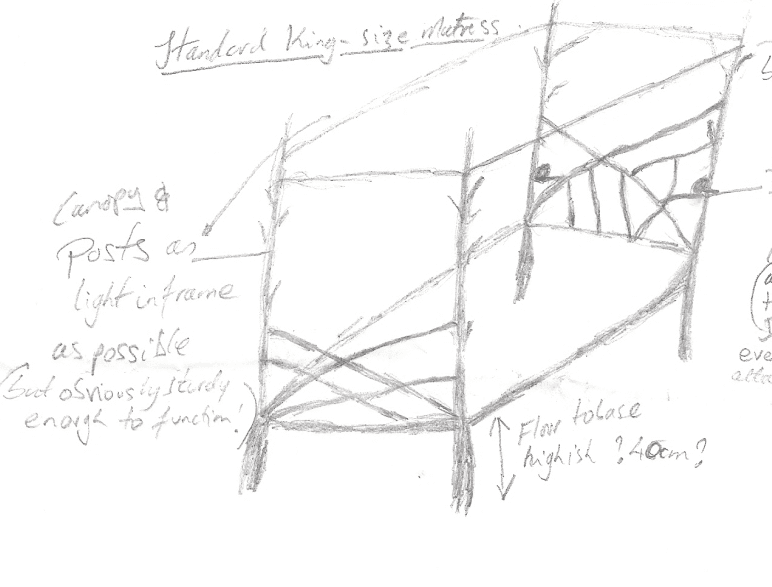 Standard King-size Matress
Canopy &
Posts as
light in frame
as possible
(but obviously sturdy
enough to function!)
Floor to base
highish ? 40cm ?
eve